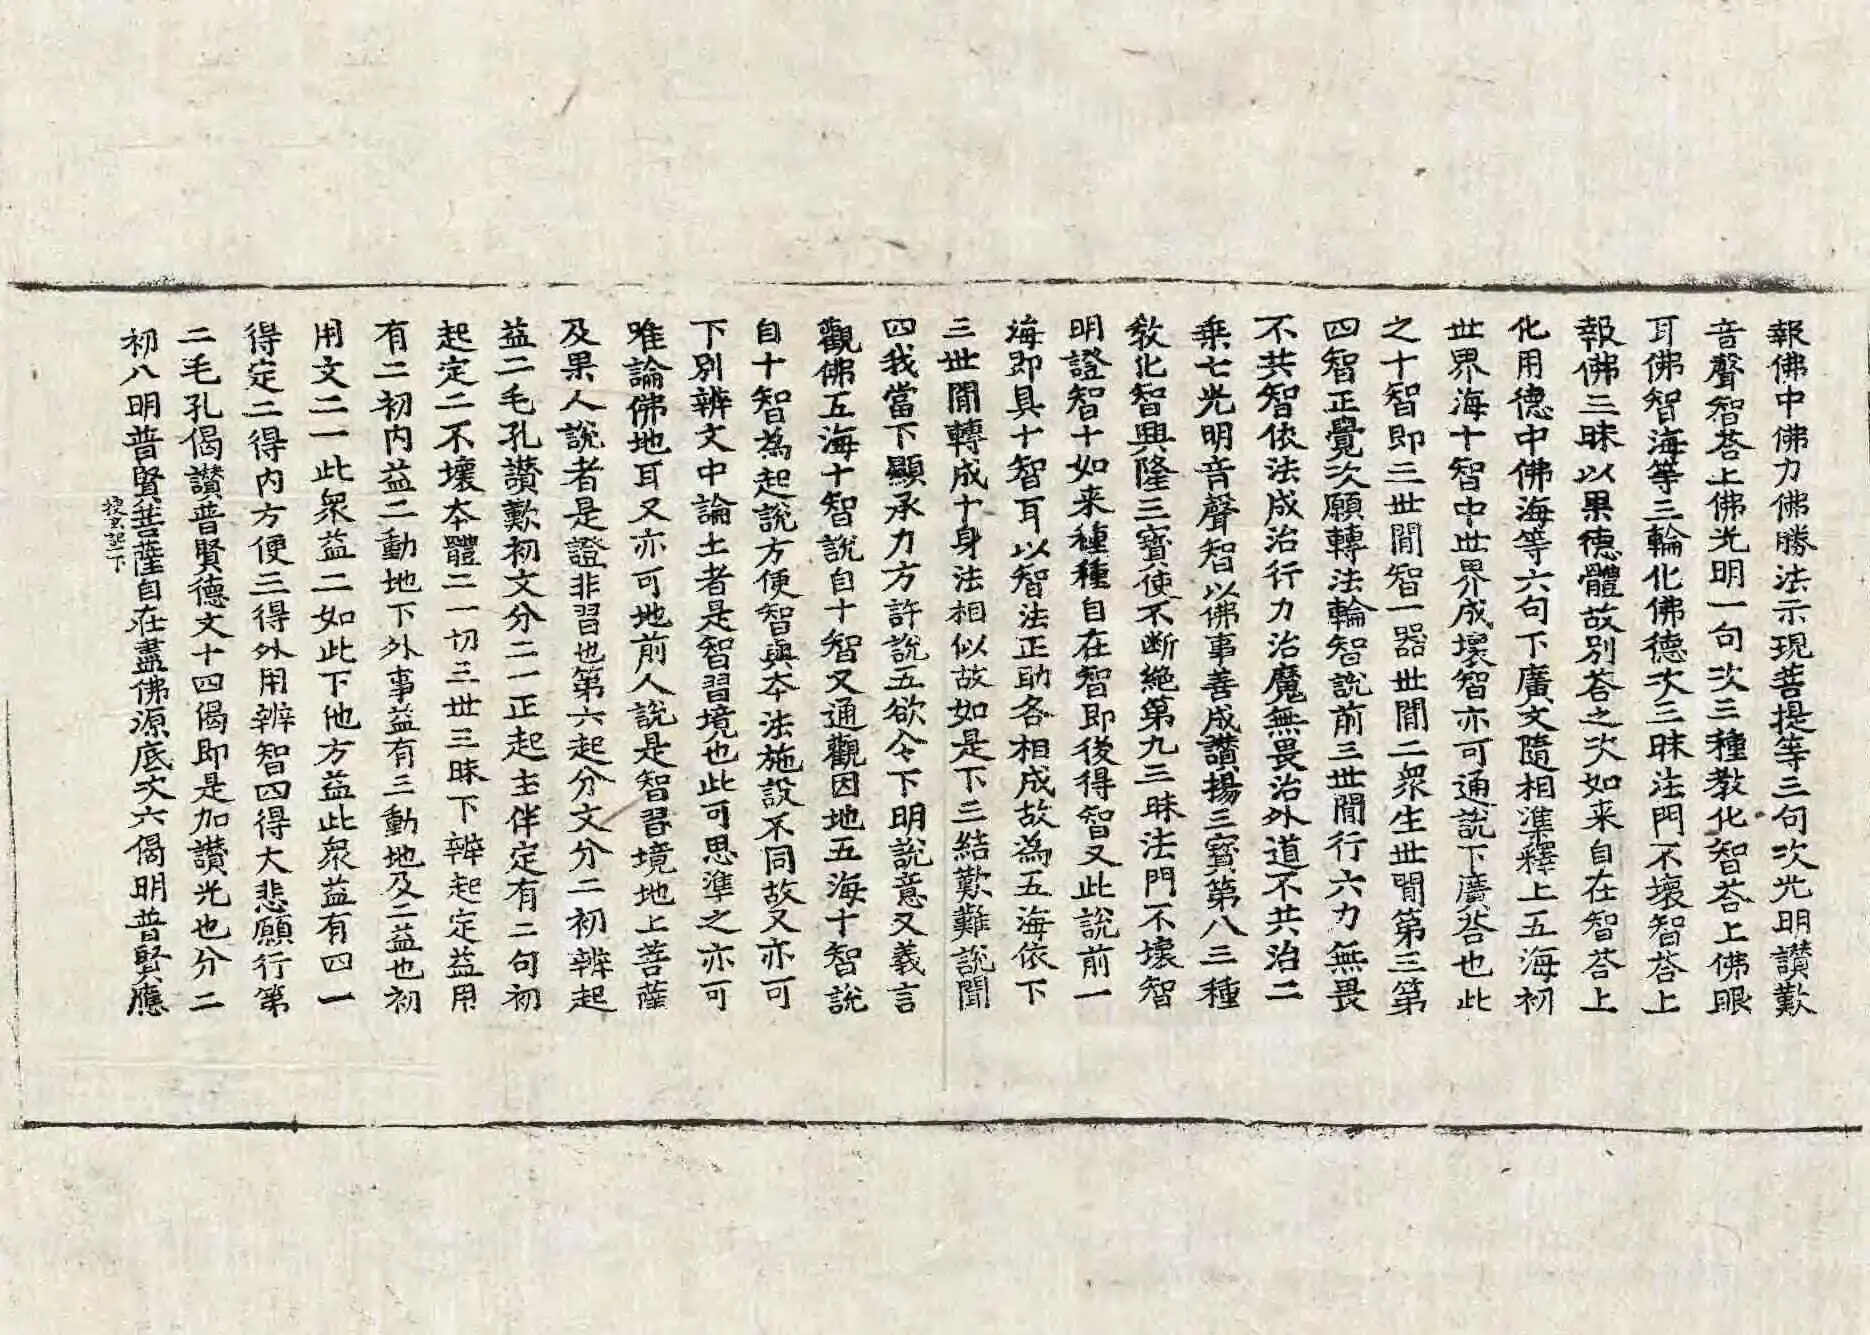 報佛中佛力佛勝法示現菩提等三句次光明讃歎
音聲智荅上佛光明一句次三種教化智荅上佛眼
耳佛智海等三輪化佛德次三昧法門不壞智荅上
報佛三昧以果德體故別荅之次如来自在智荅上
化用德中佛海等六句下廣文隨相準釋上五海初
世界海十智中世界成壞智亦可通說下廣荅也此
之十智即三世間智一器世間二衆生世間第三第
四智正覺次願轉法輪智說前三世間行六力無畏
不共智依法成治行力治魔無畏治外道不共治二
乗七光明音聲智以佛事善成讃揚三寶第八三種
教化智興隆三寶使不断絶第九三昧法門不壞智
明證智十如来種種自在智即後得智又此說前一
海即具十智耳以智法正助各相成故為五海依下
三世間轉成十身法相似故如是下三結歎難說聞
四我當下顯承力方許說五欲令下明說意又義言
觀佛五海十智說自十智又通觀因地五海十智說
自十智為起說方便智與本法施設不同故又亦可
下別辨文中論土者是智習境也此可思準之亦可
唯論佛地耳又亦可地前人說是智習境地上菩薩
及果人說者是證非習也第六起分文分二初辨起
益二毛孔讃歎初文分二一正起主伴定有二句初
起定二不壞本體二一切三世三昧下辨起定益用
有二初内益二動地下外事益有三動地及二益也初
用文二一此衆益二如此下他方益此衆益有四一
得定二得内方便三得外用辨智四得大悲願行第
二毛孔偈讃普賢德文十四偈即是加讃光也分二
初八明普賢菩薩自在盡佛源底次六偈明普賢應
搜玄記一下